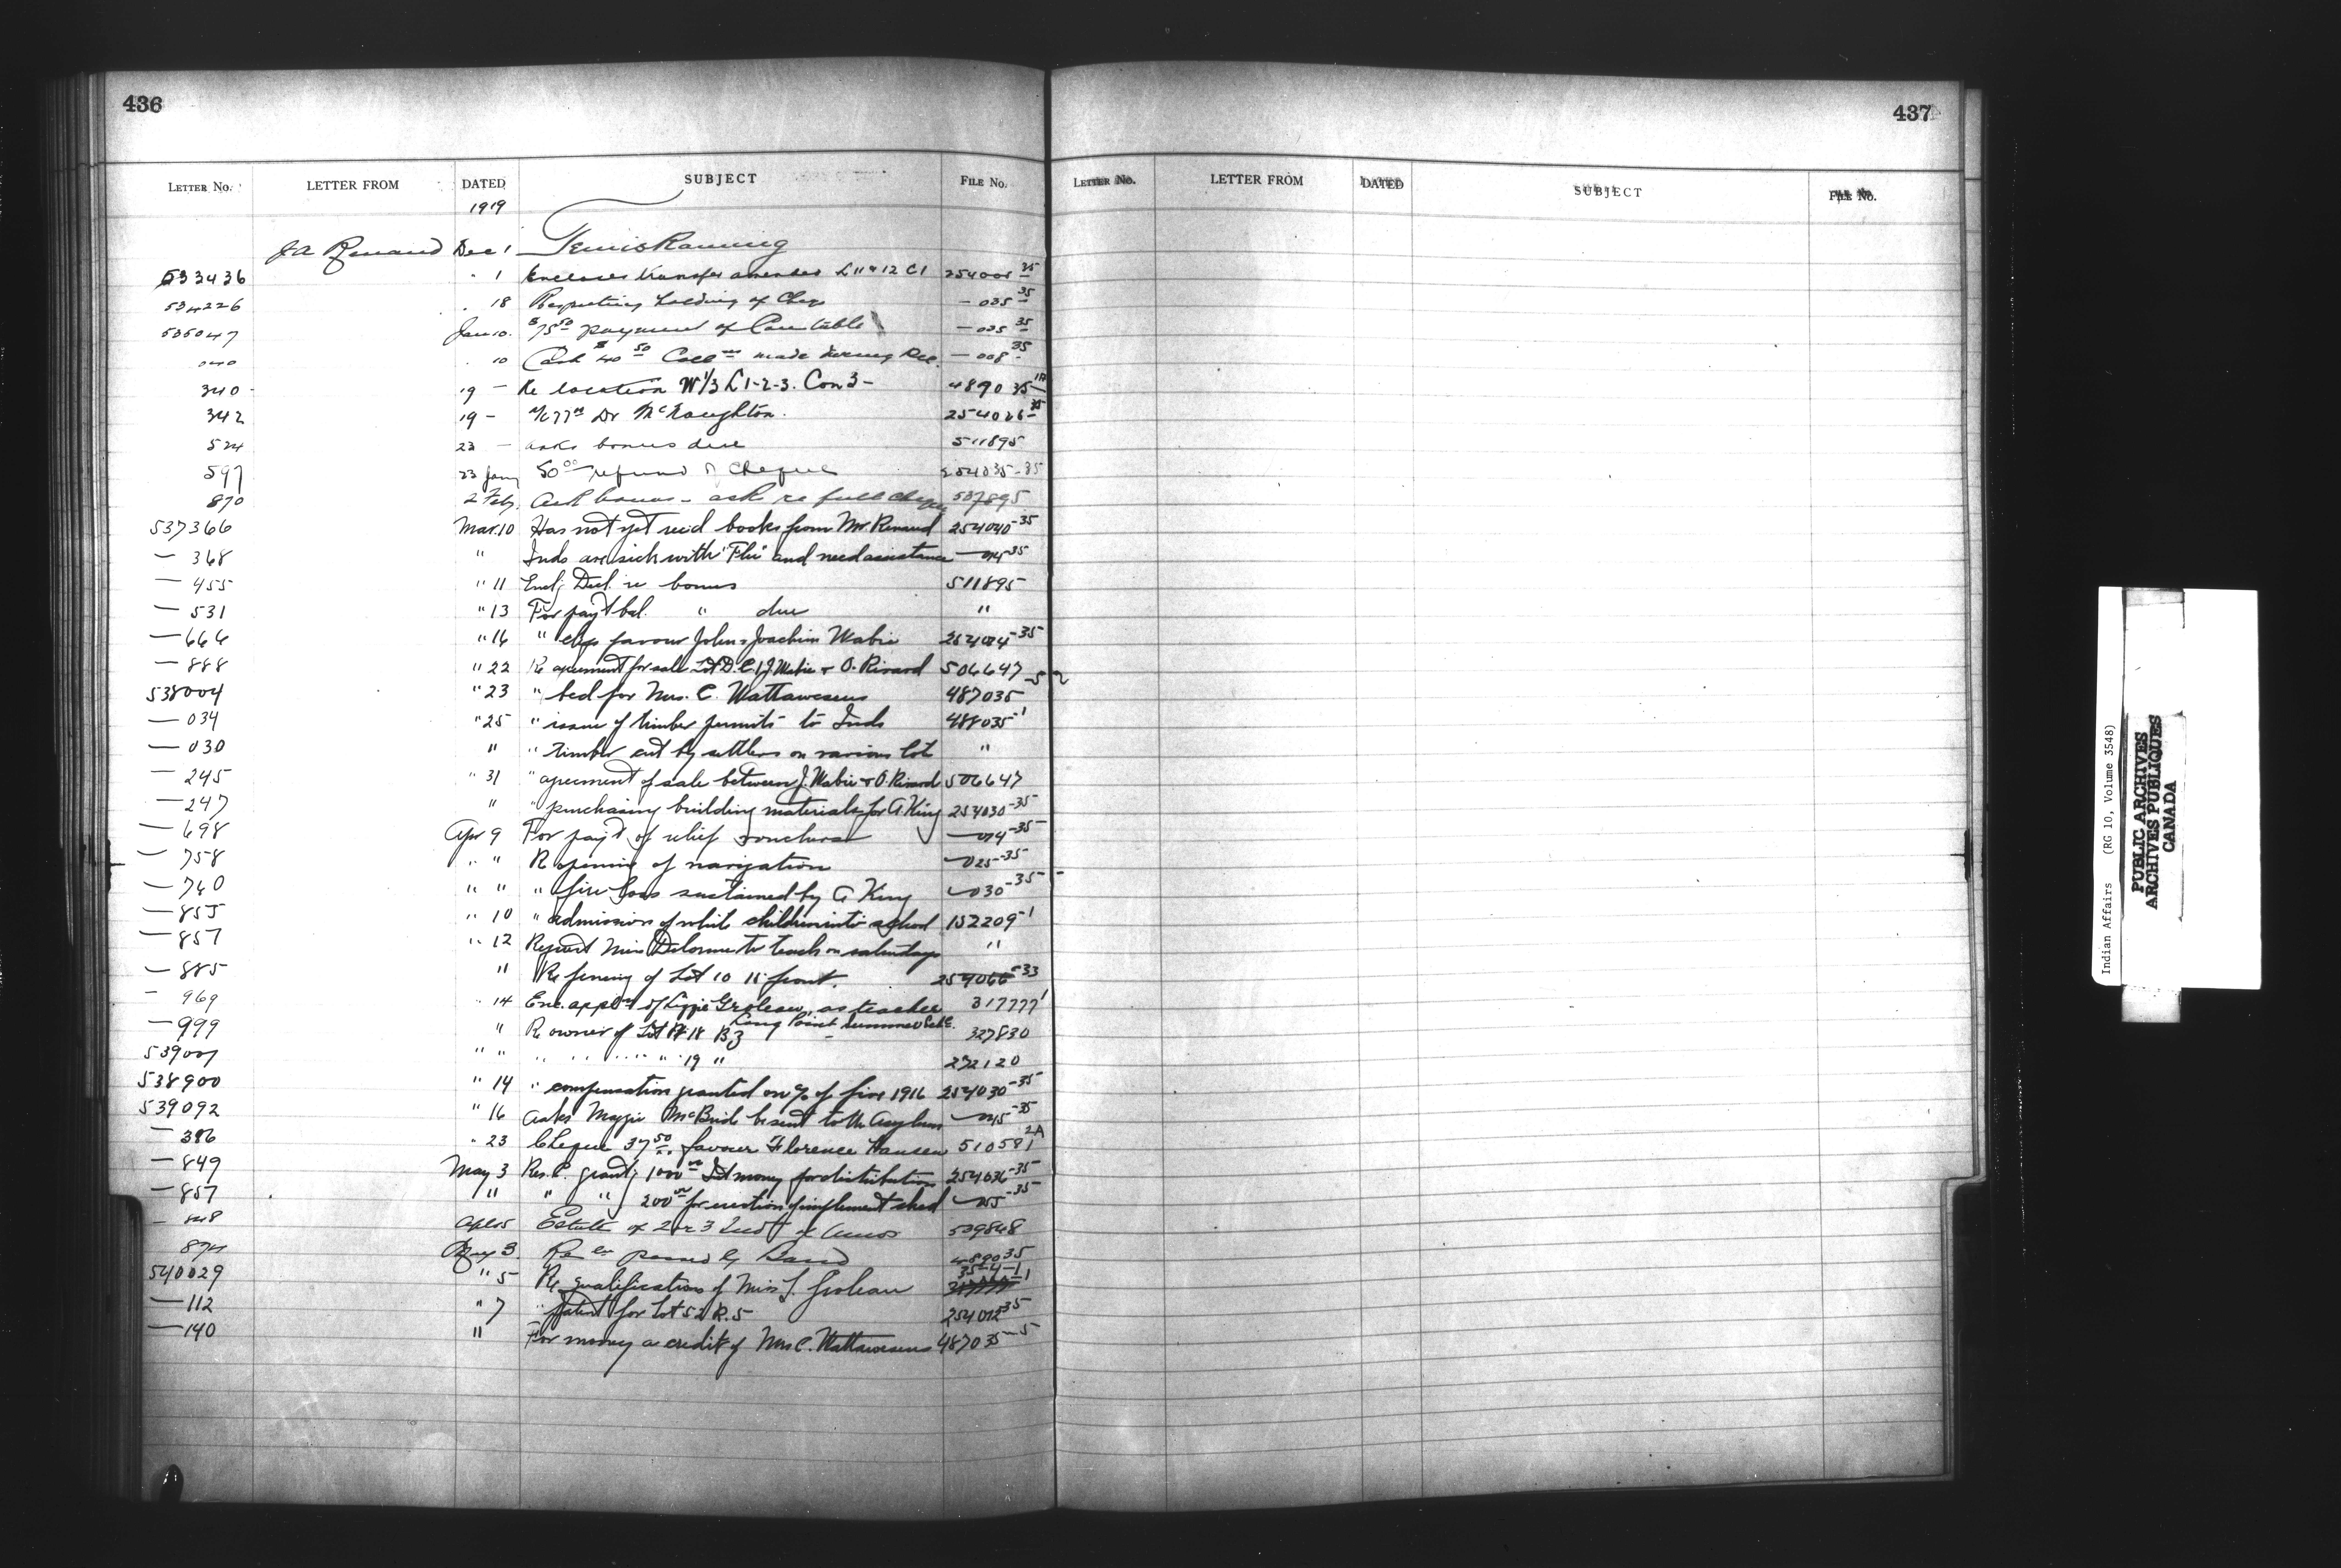 436
LETTER NO. LETTER FROM DATED SUBJECT FILE NO.
1919
J A Renaud Dec 1 Temiskaming
533436 " 1 Encloses transfer L 11 & 12 C 1 254008-35
534226 " 18 Respecting holding of Chqs — 035-35
535047 Jan 10. $75.50 payment of Constable — 035-35
" 10 Cash $40 50 Coll made during Dec. — 008-35
340 19 — Re location W 1/3 L 1-2-3. Con 3 —
342 19 - Dr McNaughton. 254026-35
524 23 — asks bonus due 511895
597 23 Jany 50.00 refund of Cheque 254035-35
870 2 Feb. bonus - ask re full
537366 Mar. 10 Has not yet recd books from Mr Renaud 254040-35
— 368 " Inds are sick with "Flu" and need assistance — 014-35
— 455 " 11 Encl'g Decl. re bonus 511895
— 531 " 13 For pay't bal. " due "
— 666 " 16 " chqs favour John & Joachim Wabie 254014-35
— 888 " 22 Re agreement for sale Lot D. C. 1 J. Wabie & O. Rivard 506647
538004 " 23 " bed for Mrs. C. Wattawesens 487035-5
— 034 " 25 " issue of timber permits to Inds 488035-1
— 030 " " timber cut by settlers on various lots "
— 245 " 31 " agreement of sale between J. Wabie & O. Rivard 506647
— 247 " " purchasing building materials for A King 254030-35
— 698 Apr 9 For pay't of relief vouchers — 014-35
— 758 " " Re opening of navigation — 025-35
— 740 " " " fire loss sustained by A King — 030-35
— 855 " 10 " admission of white children into school 152209-1
— 857 " 12 Request Miss Delorme to teach on saturdays "
— 885 " Re fencing of Lot 10 front. 254066-33
— 969 " 14 Enc. appl'n of Lizzie Groleau, as teacher 317777-1
Long Point Summer Schl.
— 999 " Re owner of Lot 18 B3 327830
539007 " " " " " " 19 " 272120
538900 " 14 " compensation granted on a/c of fire 1916 254030-35
539092 " 16 Asks Maggie McBride be sent to the Asylum — 015-35
— 386 " 23 Cheque 37.50 favour Florence Hansen 510581-2A
— 849 May 3 Res. C. grant'g 1000.00 Int money for distribution 254036-35
— 857 " " " 200.00 for erection of implement shed — 055-35
— 848 Apl 15 Estate of 2 or 3 Inds of Amos 539848
874 May 3. passed by Band 489035
540029 " 5 Re qualifications of Miss L. Groleau 35-4-1
— 112 " 7 " patent for Lot 52 R. 5 254012-35
— 140 " For money a credit of Mrs C. Wattawesens 487035-5
437
LETTER NO. LETTER FROM DATED SUBJECT FILE NO.
Indian Affairs (RG 10, Volume 3548)
PUBLIC ARCHIVES
ARCHIVES PUBLIQUES
CANADA